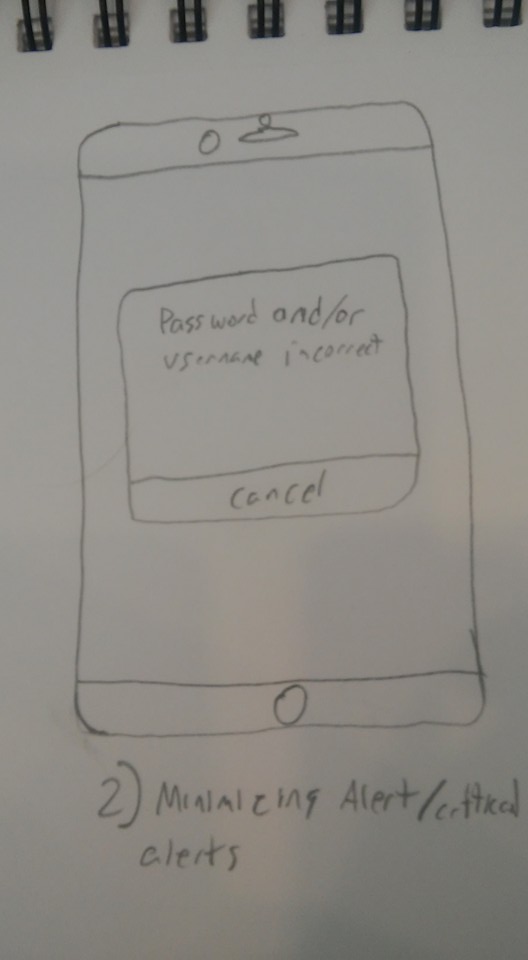 Password and/or
username incorrect
cancel
2) Minimizing Alert/critical
alerts